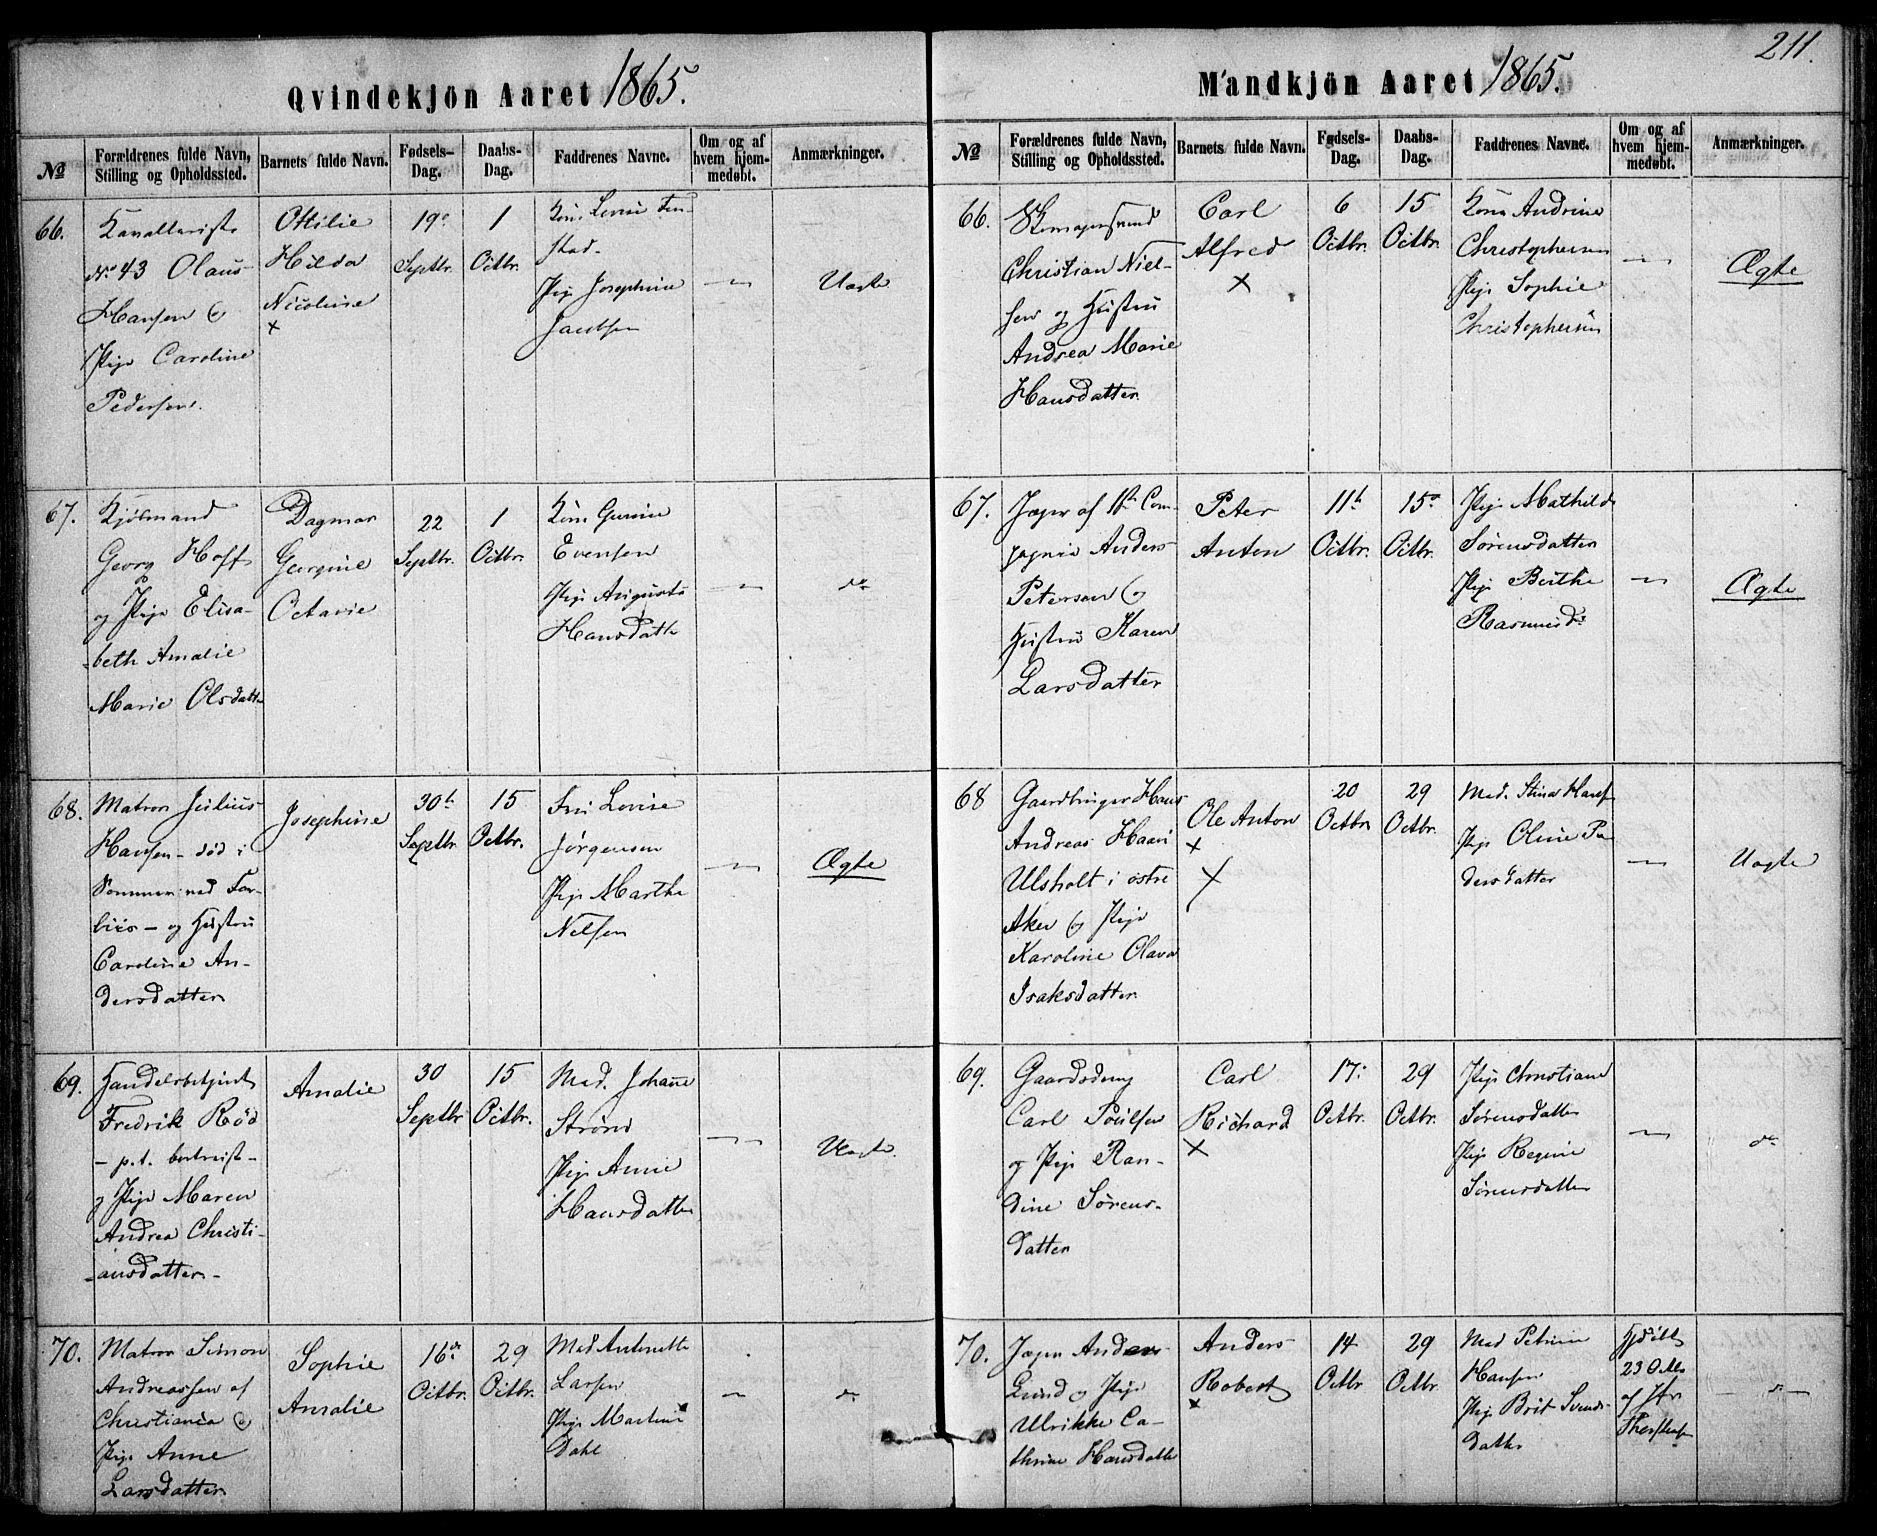 211.
Qvindekjön Aaret 1865.
№
Forældrenes fulde Navn, Stilling og Opholdssted.
Barnets fulde Navn.
Fødsels-Dag.
Daabs-Dag.
Faddrenes Navne.
Om og af hvem hjemmedøbt.
Anmærkninger.
66.
Kavallerist
No 43 Olaus
Hansen &
Pige Caroline
Pedersen.
Ottilie
Hilda
Nicoline
×
19
Septbr.
1
Octbr.
Kone Lovise
Pige Josephine
Jacobsen
Uægte
67.
Kjøbmand
Georg Hoft
og Pige Elisa-
beth Amalie
Marie Olsdatter
Dagmar
Georgine
Octavie
22
Septbr.
1
Octbr.
Kone Gurine
Evensen
Pige Augusta
Hansdatter
do
68.
Matros Julius
Hansen – død i
Sommer ved For-
liis – og Hustru
Caroline An-
dersdatter
Josephine
30te
Septbr.
15
Octbr.
Lovise
Jørgensen
Pige Marthe
Nelsen
Ægte
69.
Handelsbetjent
Fredrik Rød
– p.t. bortreist –
og Pige Maren
Andrea Christi-
ansdatter –
Amalie
30
Septbr.
15
Octbr.
Mad. Johanne
Strøm
Pige Annie
Hansdatter
Uægte
70.
Matros Simon
Andreassen af
Christiania &
Pige Anne
Larsdatter
Sophie
Amalie
16de
Octbr.
29
Octbr.
Mad Antonette
Larsen
Pige Martine
Dahl
do
Mandkjön Aaret 1865.
№
Forældrenes fulde Navn, Stilling og Opholdssted.
Barnets fulde Navn.
Fødsels-Dag.
Daabs-Dag.
Faddrenes Navne.
Om og af hvem hjemmedøbt.
Anmærkninger.
66.
Skomagersvend
Christian Niel-
sen og Hustru
Andrea Marie
Hansdatter
Carl
Alfred
×
6
Octbr.
15
Octbr.
Kone Andrine
Christophersen
Pige Sophie
Christophersen
Ægte
67.
Jæger af 1ste Com-
pagnie Anders
Petersen &
Hustru Karen
Larsdatter
Peter
Anton
11te
Octbr.
15
Octbr.
Pige Mathilde
Sørensdatter
Pige Berthe
Rasmusd:
Ægte
68
Gaardbruger Hans
Andreas
Ulsholt i østre
Aker & Pige
Karoline Olava
Isaksdatter
Ole Anton
×
×
20
Octbr.
29
Octbr.
Mad. Stina Hansen
Pige Oline Pe
dersdatter
Uægte
69.
Gaardsdreng
Carl Poulsen
og Pige Ran-
dine Sørens-
datter
Carl
Richard
×
17
Octbr.
29
Octbr.
Pige Christiane
Sørensdatter
Pige Regine
Sørensdatter
do
70.
Jæger Anders
Lund og Pige
Ulrikke Ca-
thrine Hansdatter
Anders
Robert
×
14
Octbr
29
Octbr
Mad Petrine
Hansen
Pige Brit Svends-
datter
Hjdøbt
23 Octbr
af Jfr
do